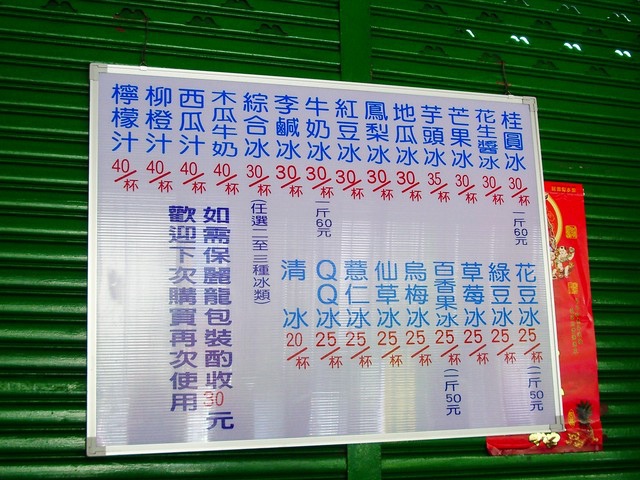 桂圓冰 30/杯 一斤60元
花生醬冰 30/杯
芒果冰 30/杯
芋頭冰 35/杯
地瓜冰 30/杯
鳳梨冰 30/杯
紅豆冰 30/杯
牛奶冰 30/杯 一斤60元
李鹹冰 30/杯
綜合冰 30/杯 (任選二至三種冰類)
木瓜牛奶 40/杯
西瓜汁 40/杯
柳橙汁 40/杯
檸檬汁 40/杯
花豆冰 25/杯 (一斤50元
綠豆冰 25/杯
草莓冰 25/杯
百香果冰 25/杯 (一斤50元
烏梅冰 25/杯
仙草冰 25/杯
薏仁冰 25/杯
QQ冰 25/杯
清冰 20/杯
如需保麗龍包裝酌收30元
歡迎下次購買再次使用